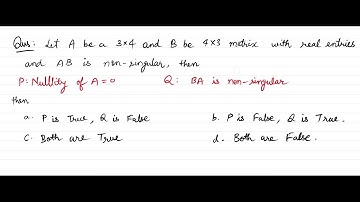 Ques: Let A be a 3×4 and B be 4×3 matrix with real entries
and AB is non-singular, then
P: Nullity of A = 0 Q: BA is non-singular
then
a. P is True, Q is False b. P is False, Q is True.
c. Both are True d. Both are False.